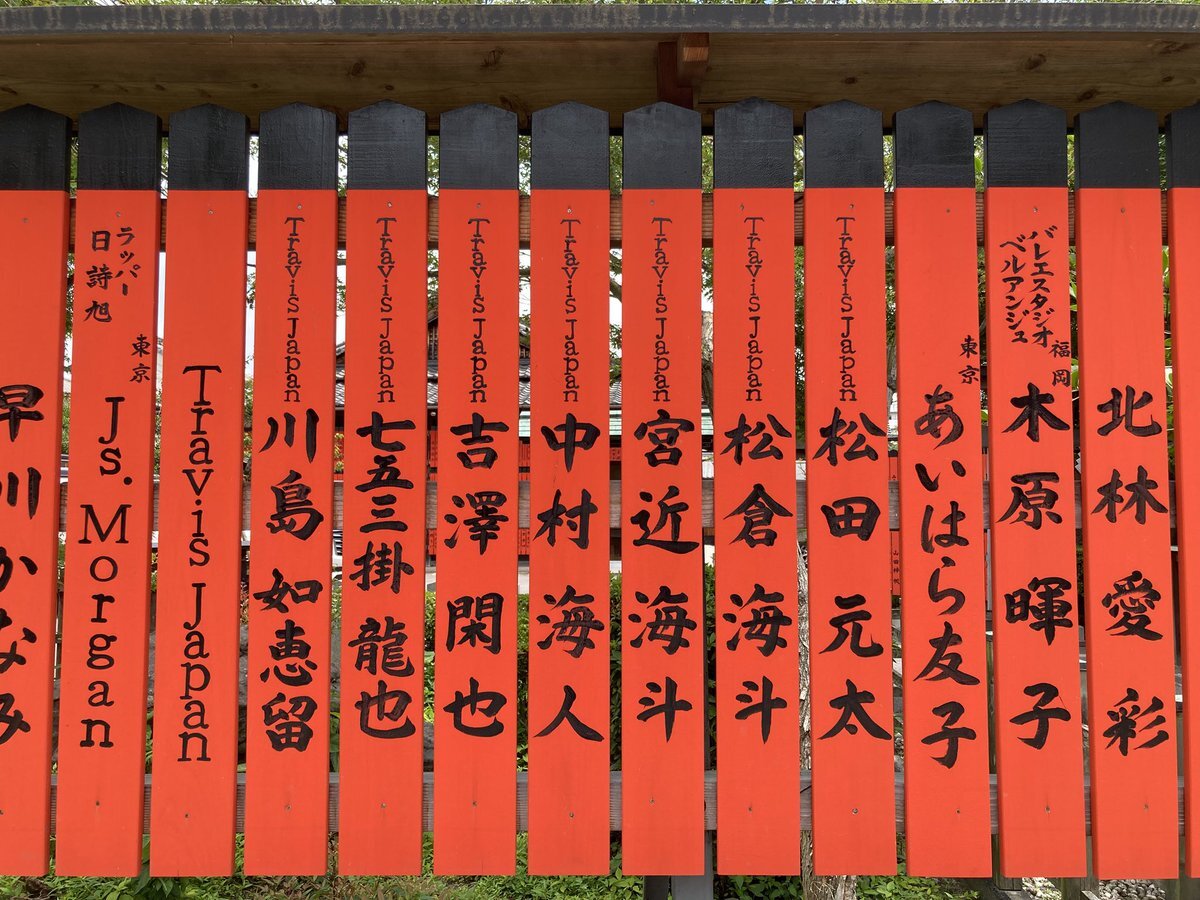 北林愛彩
バレエスタジオ
ベルアンジュ
福岡
木原暉子
東京
あいはら友子
Travis Japan 松田元太
Travis Japan 松倉海斗
Travis Japan 宮近海斗
Travis Japan 中村海人
Travis Japan 吉澤閑也
Travis Japan 七五三掛龍也
Travis Japan 川島如恵留
Travis Japan
ラッパー
日詩旭
東京
Js. Morgan
早川かなみ